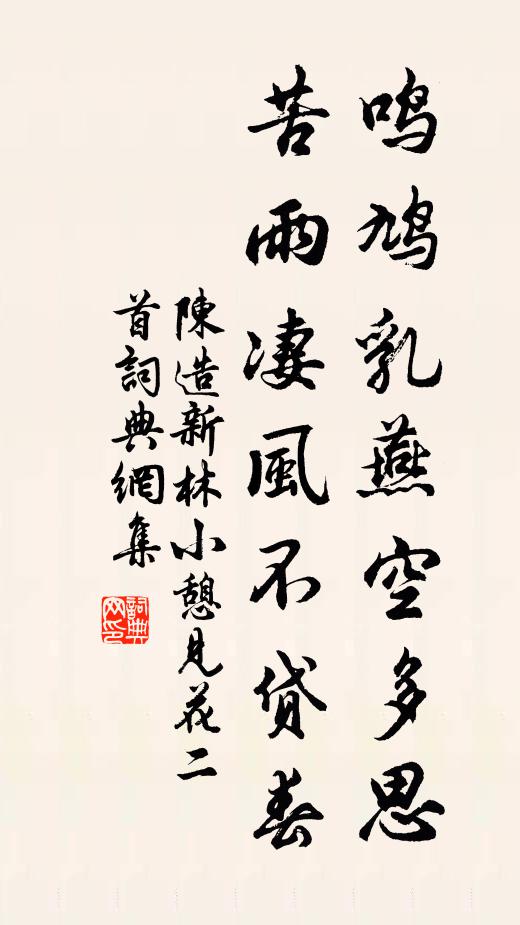 鸣鸠乳燕空多思
苦雨凄風不貸春
陳造新林小憩見花二
首詞典網集
詞典
网印